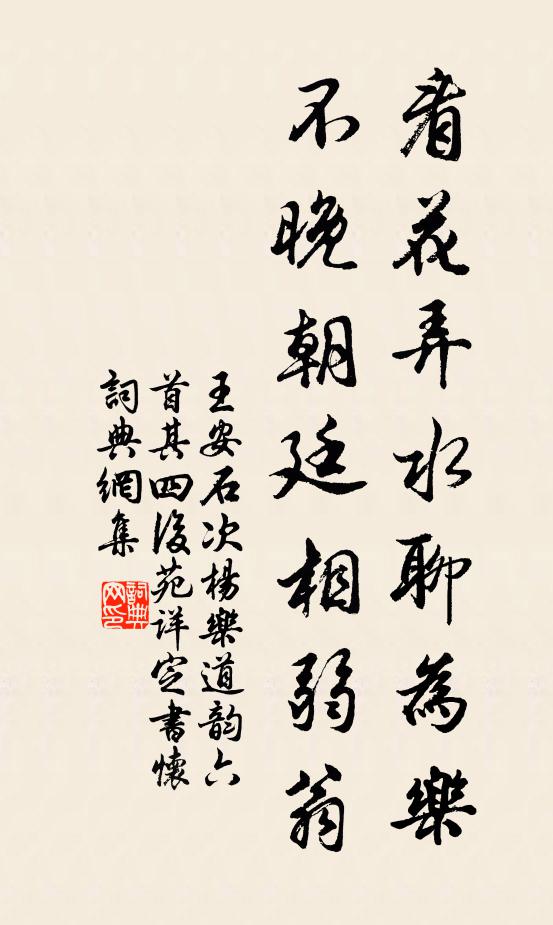 看花弄水聊為樂
不晚朝廷相弱翁
王安石次楊樂道韻六
首其四後苑詳定書懷
詞典網集
詞典網印